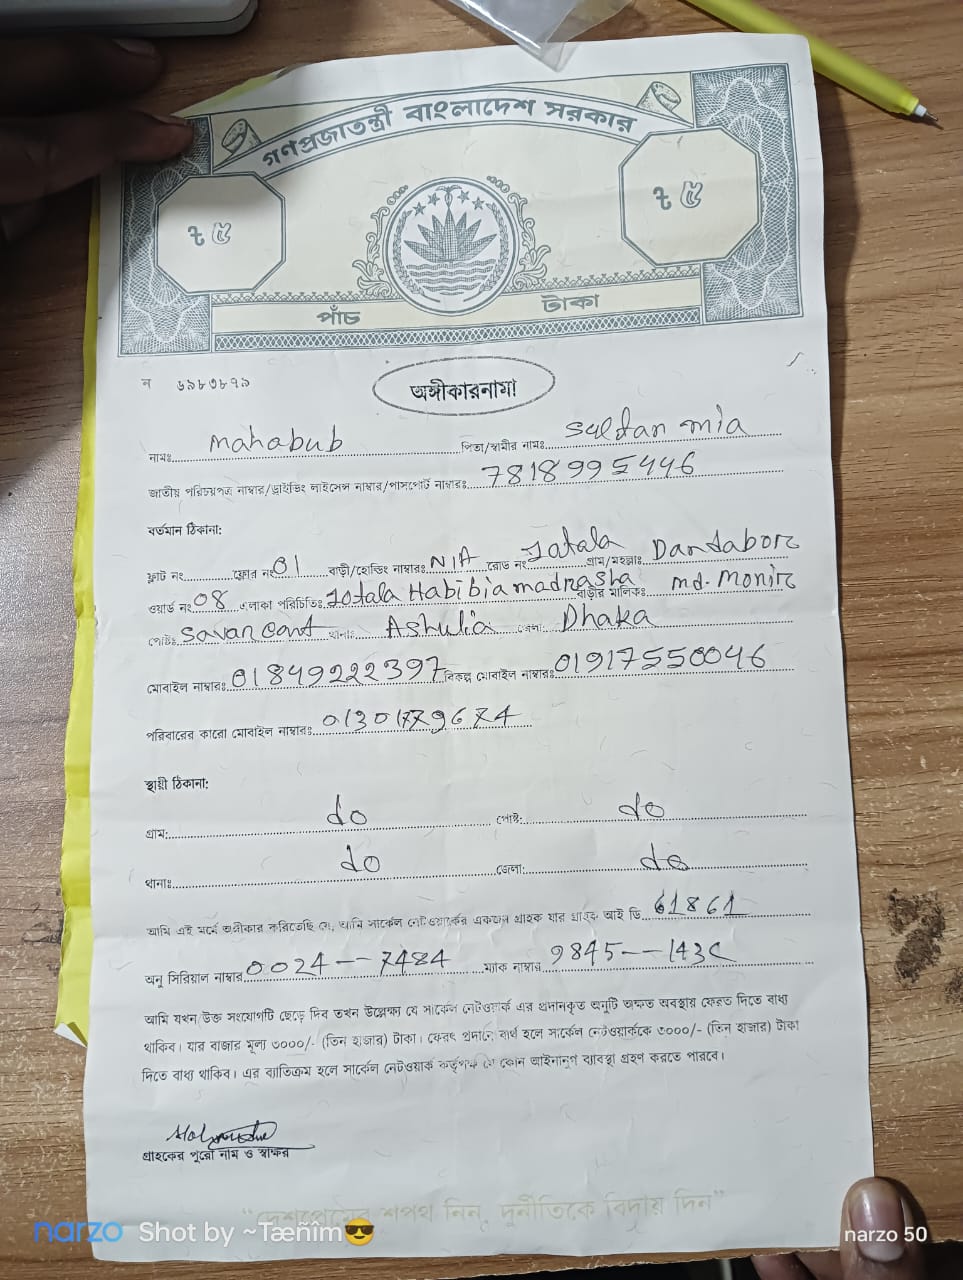 গণপ্রজাতন্ত্রী বাংলাদেশ সরকার
৳ ৫ ৳ ৫
পাঁচ টাকা
ন ৬৯৮৩৮৭৯
অঙ্গীকারনামা
নামঃ mahabub পিতা/স্বামীর নামঃ sultan mia
জাতীয় পরিচয়পত্র নাম্বার/ড্রাইভিং লাইসেন্স নাম্বার/পাসপোর্ট নাম্বারঃ 7818995446
বর্তমান ঠিকানা:
ফ্লাট নং ফ্লোর নং 01 বাড়ী/হোল্ডিং নাম্বারঃ N/A রোড নং Totala গ্রাম/মহল্লাঃ Dandabore
ওয়ার্ড নং 08 এলাকা পরিচিতিঃ Totala Habibia madrasha বাড়ীর মালিকঃ md. Monir
পোষ্টঃ Savar Cant থানাঃ Ashulia জেলা: Dhaka
মোবাইল নাম্বারঃ 01849222397 বিকল্প মোবাইল নাম্বারঃ 01917550046
পরিবারের কারো মোবাইল নাম্বারঃ
স্থায়ী ঠিকানা:
গ্রাম: do পোষ্ট: do
থানাঃ do জেলা: do
আমি এই মর্মে অঙ্গীকার করিতেছি যে, আমি সার্কেল নেটওয়ার্কের একজন গ্রাহক যার গ্রাহক আই ডি 61861
অনু সিরিয়াল নাম্বার 0024--7484 ম্যাক নাম্বার 9845--143C
আমি যখন উক্ত সংযোগটি ছেড়ে দিব তখন উল্লেক্ষ্য যে সার্কেল নেটওয়ার্ক এর প্রদানকৃত অনুটি অক্ষত অবস্থায় ফেরত দিতে বাধ্য
থাকিব। যার বাজার মূল্য ৩০০০/- (তিন হাজার) টাকা। ফেরৎ প্রদানে ব্যর্থ হলে সার্কেল নেটওয়ার্ককে ৩০০০/- (তিন হাজার) টাকা
দিতে বাধ্য থাকিব। এর ব্যতিক্রম হলে সার্কেল নেটওয়ার্ক কর্তৃপক্ষ যে কোন আইনানুগ ব্যাবস্থা গ্রহণ করতে পারবে।
গ্রাহকের পুরো নাম ও স্বাক্ষর
"দেশপ্রেমের শপথ নিন, দুর্নীতিকে বিদায় দিন"
narzo Shot by ~Tæñîm😎 narzo 50